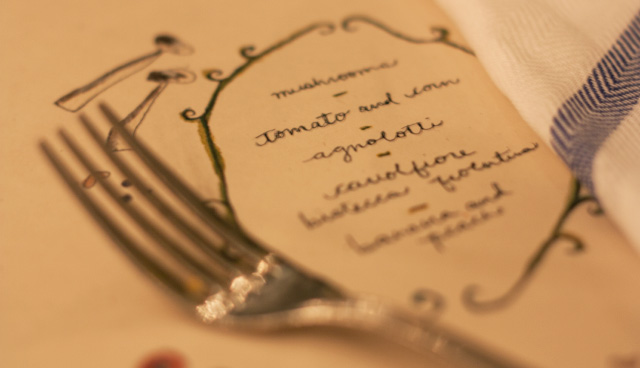 mushrooms
-
tomato and corn
-
agnolotti
-
cavolfiore
bistecca fiorentina
-
banana and
peach